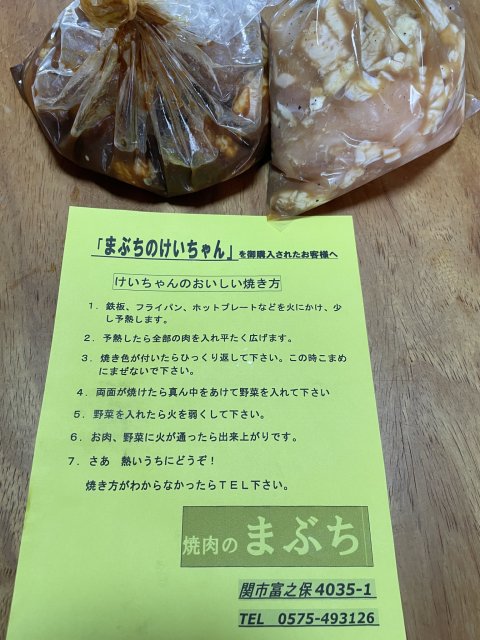 「まぶちのけいちゃん」を御購入されたお客様へ
けいちゃんのおいしい焼き方
１．鉄板、フライパン、ホットプレートなどを火にかけ、少
し予熱します。
２．予熱したら全部の肉を入れ平たく広げます。
３．焼き色が付いたらひっくり返して下さい。この時こまめ
にまぜないで下さい。
４．両面が焼けたら真ん中をあけて野菜を入れて下さい
５．野菜を入れたら火を弱くして下さい。
６．お肉、野菜に火が通ったら出来上がりです。
７．さあ　熱いうちにどうぞ！
焼き方がわからなかったらＴＥＬ下さい。
焼肉の まぶち
関市富之保4035-1
TEL 0575-493126